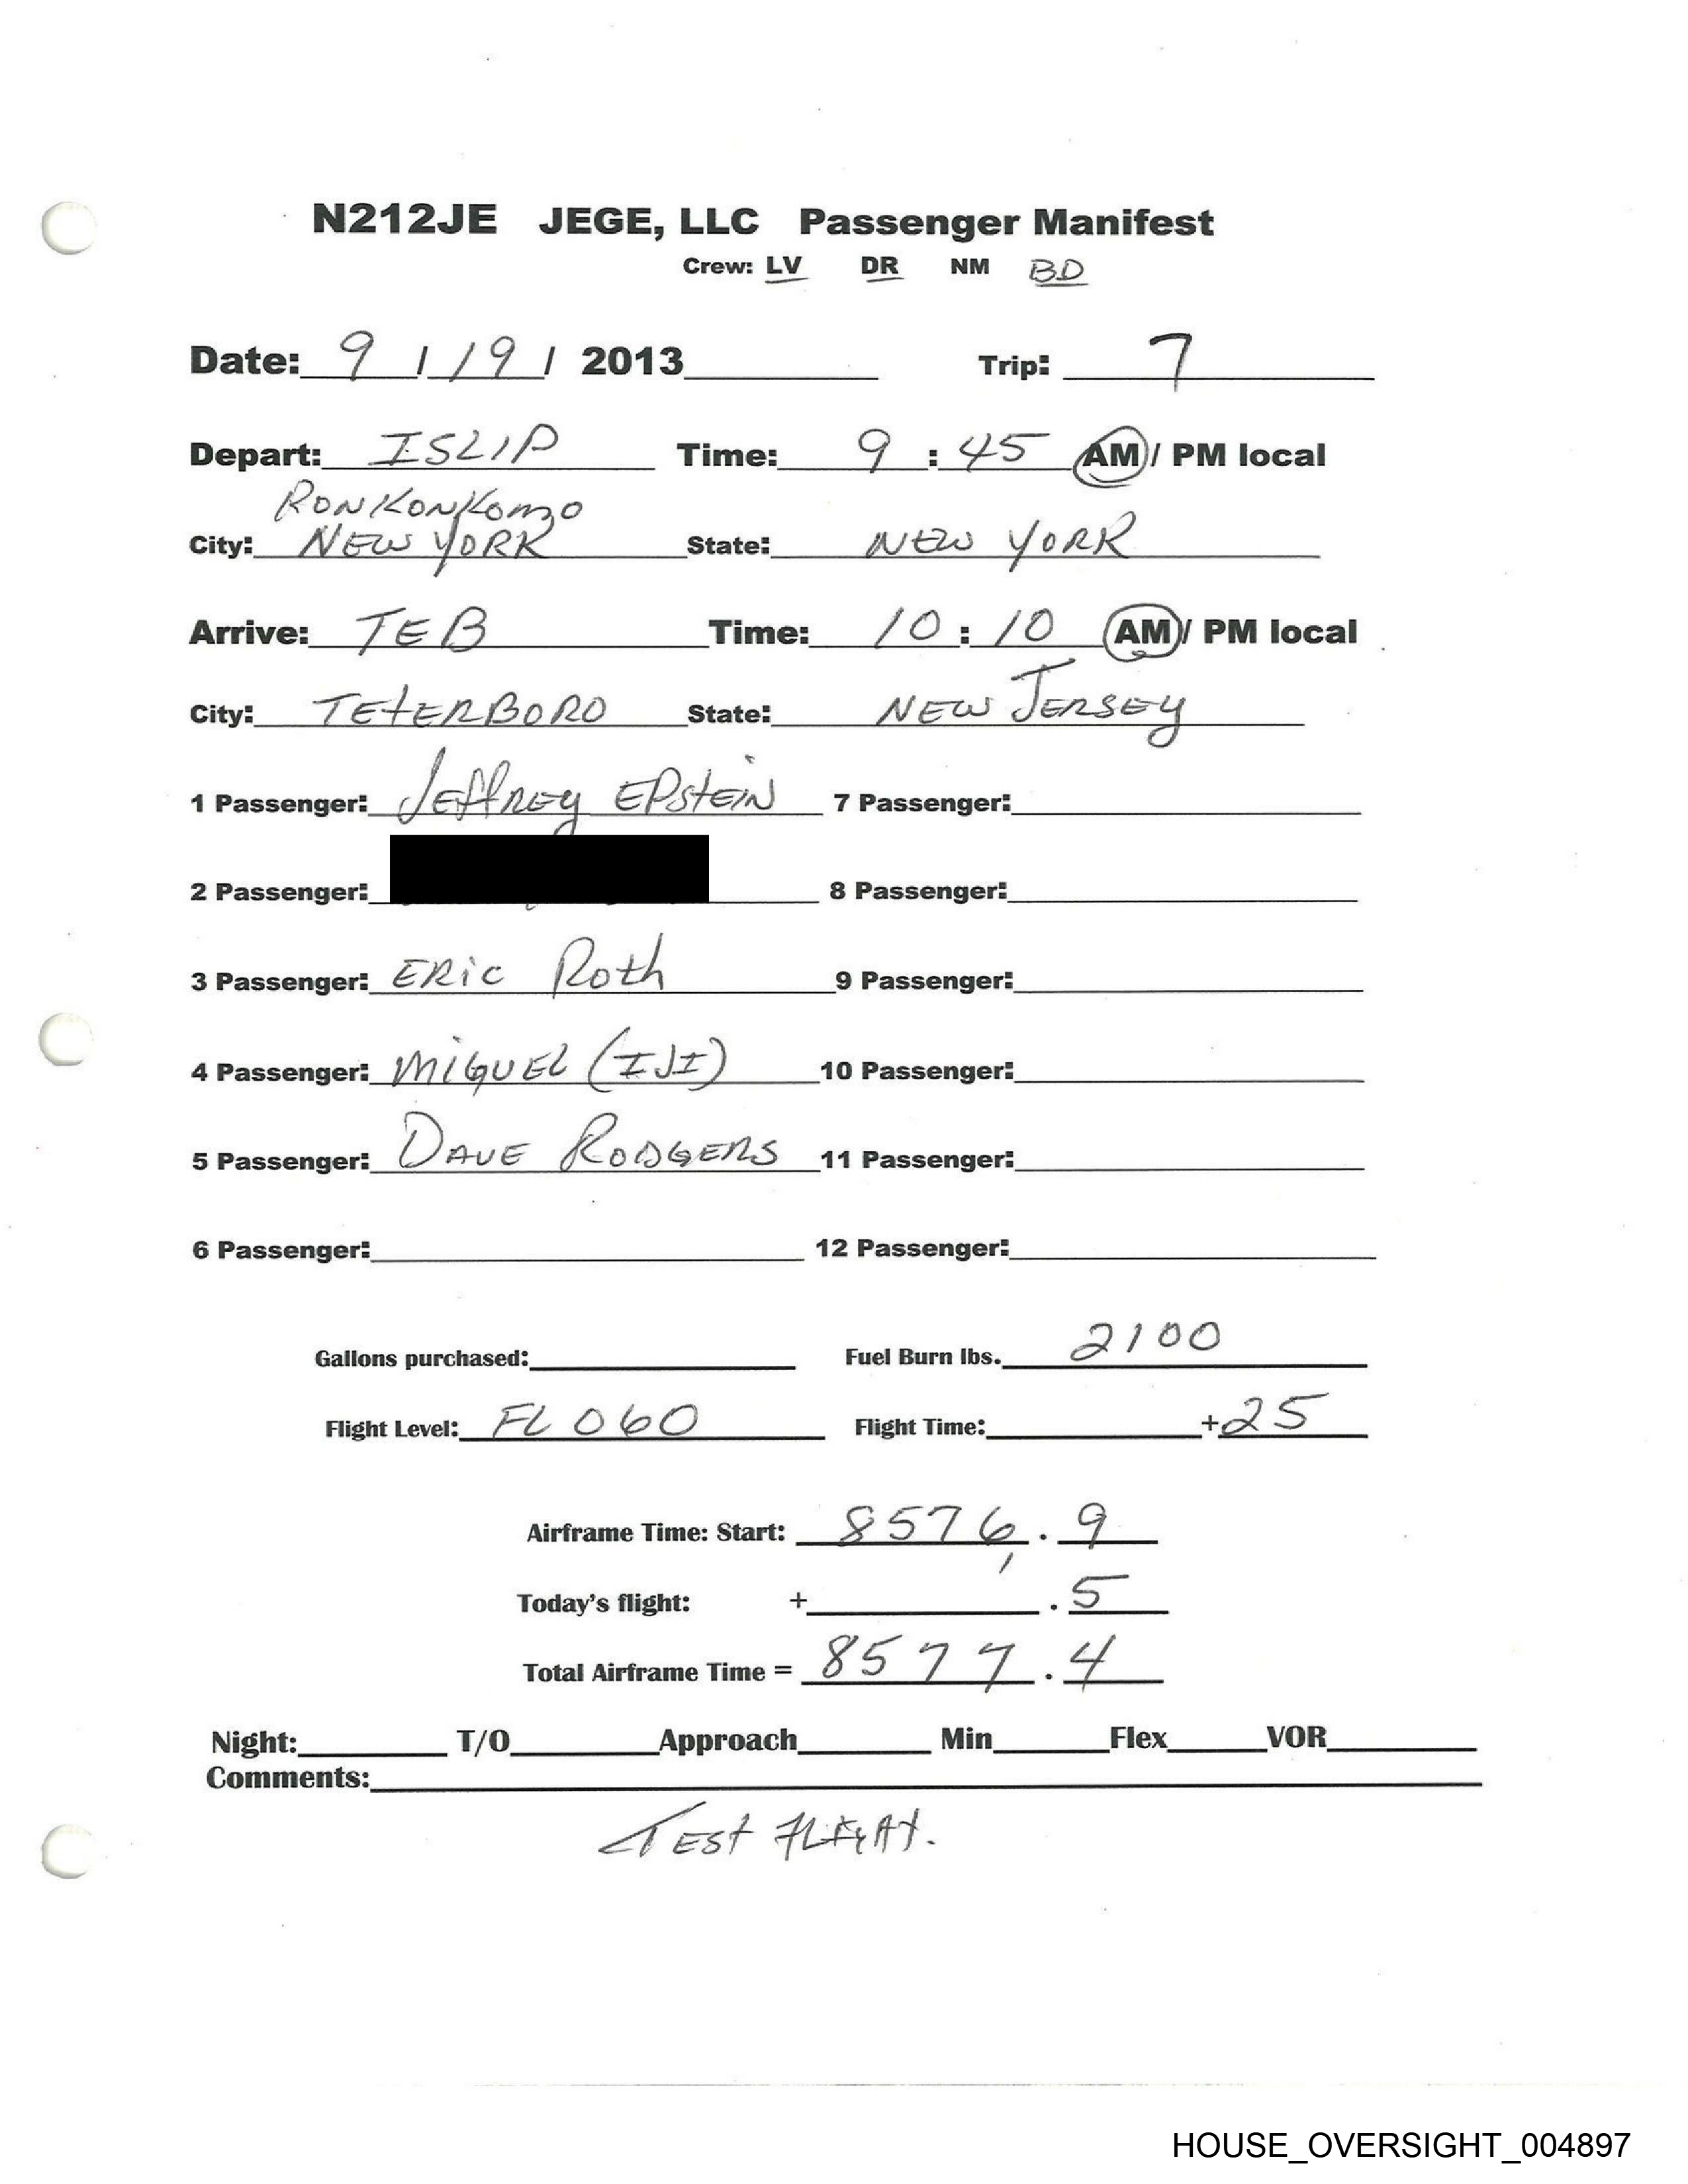 N212JE JEGE, LLC Passenger Manifest
Crew: LV DR NM BD
Date: 9 / 19 / 2013 Trip: 7
Depart: ISLIP Time: 9 : 45 AM / PM local
RONKONKOMO
City: NEW YORK State: NEW YORK
Arrive: TEB Time: 10 : 10 AM / PM local
City: TETERBORO State: NEW JERSEY
1 Passenger: JEFFREY EPSTEIN 7 Passenger:
2 Passenger: 8 Passenger:
3 Passenger: ERIC ROTH 9 Passenger:
4 Passenger: MIGUEL (IJI) 10 Passenger:
5 Passenger: DAVE RODGERS 11 Passenger:
6 Passenger: 12 Passenger:
Gallons purchased: Fuel Burn lbs. 2100
Flight Level: FL 060 Flight Time: +25
Airframe Time: Start: 8576 . 9
Today's flight: + . 5
Total Airframe Time = 8577 . 4
Night: T/O Approach Min Flex VOR
Comments:
TEST FLIGHT.
HOUSE_OVERSIGHT_004897